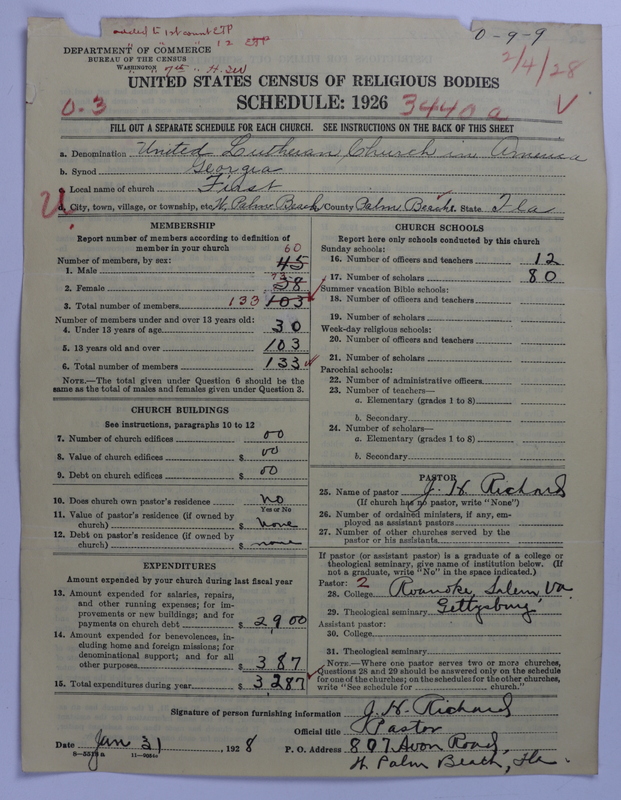 added to 1st count EJP
" " " 12 EJP
" " 7th " H.W
0-9-9
2/4/28
DEPARTMENT OF COMMERCE
BUREAU OF THE CENSUS
WASHINGTON
UNITED STATES CENSUS OF RELIGIOUS BODIES
0-3 SCHEDULE: 1926 3440a V
FILL OUT A SEPARATE SCHEDULE FOR EACH CHURCH. SEE INSTRUCTIONS ON THE BACK OF THIS SHEET
a. Denomination United Lutheran Church in America
b. Synod Georgia
c. Local name of church First
U d. City, town, village, or township, etc W. Palm Beach County Palm Beach State Fla
MEMBERSHIP
Report number of members according to definition of
member in your church
Number of members, by sex: 60
1. Male 45
2. Female 73 58
3. Total number of members 133 103
Number of members under and over 13 years old:
4. Under 13 years of age 30
5. 13 years old and over 103
6. Total number of members 133
NOTE.—The total given under Question 6 should be the
same as the total of males and females given under Question 3.
CHURCH BUILDINGS
See instructions, paragraphs 10 to 12
7. Number of church edifices 00
8. Value of church edifices $ 00
9. Debt on church edifices $ 00
10. Does church own pastor's residence No
Yes or No
11. Value of pastor's residence (if owned by
church) $ None
12. Debt on pastor's residence (if owned by
church) $ none
EXPENDITURES
Amount expended by your church during last fiscal year
13. Amount expended for salaries, repairs,
and other running expenses; for im-
provements or new buildings; and for
payments on church debt $ 2,900
14. Amount expended for benevolences, in-
cluding home and foreign missions; for
denominational support; and for all
other purposes $ 387
15. Total expenditures during year $ 3,287
CHURCH SCHOOLS
Report here only schools conducted by this church
Sunday schools:
16. Number of officers and teachers 12
17. Number of scholars 80
Summer vacation Bible schools:
18. Number of officers and teachers
19. Number of scholars
Week-day religious schools:
20. Number of officers and teachers
21. Number of scholars
Parochial schools:
22. Number of administrative officers
23. Number of teachers—
a. Elementary (grades 1 to 8)
b. Secondary
24. Number of scholars—
a. Elementary (grades 1 to 8)
b. Secondary
PASTOR
25. Name of pastor J. H. Richard
(If church has no pastor, write "None")
26. Number of ordained ministers, if any, em-
ployed as assistant pastors
27. Number of other churches served by the
pastor or his assistants
If pastor (or assistant pastor) is a graduate of a college or
theological seminary, give name of institution below. (If
not a graduate, write "No" in the space indicated.)
Pastor: 2
28. College Roanoke, Salem, Va
29. Theological seminary Gettysburg
Assistant pastor:
30. College
31. Theological seminary
NOTE.—Where one pastor serves two or more churches,
Questions 28 and 29 should be answered only on the schedule
for one of the churches; on the schedules for the other churches,
write "See schedule for church."
Signature of person furnishing information J. H. Richard
Official title Pastor
Date Jan 31, 1928 P. O. Address 807 Avon Road,
8—5519a 11—9054a
W. Palm Beach, Fla.